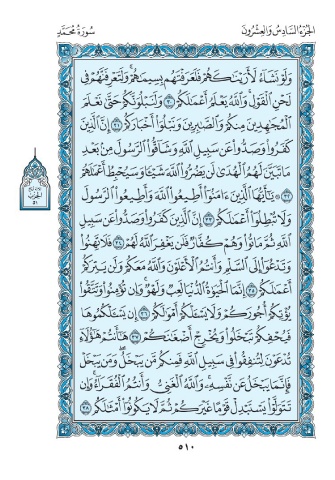 الجزء السادس والعشرون
سورة محمد
ولو نشاء لأريناكهم فلعرفتهم بسيماهم ولتعرفنهم في
لحن القول والله يعلم أعمالكم ٣٠ ولنبلونكم حتى نعلم
المجاهدين منكم والصابرين ونبلوا أخباركم ٣١ إن الذين
كفروا وصدوا عن سبيل الله وشاقوا الرسول من بعد
ما تبين لهم الهدى لن يضروا الله شيئا وسيحبط أعمالهم
٣٢ يا أيها الذين ءامنوا أطيعوا الله وأطيعوا الرسول
ولا تبطلوا أعمالكم ٣٣ إن الذين كفروا وصدوا عن سبيل
الله ثم ماتوا وهم كفار فلن يغفر الله لهم ٣٤ فلا تهنوا
وتدعوا إلى السلم وأنتم الأعلون والله معكم ولن يتركم
أعمالكم ٣٥ إنما الحياة الدنيا لعب ولهو وإن تؤمنوا وتتقوا
يؤتكم أجوركم ولا يسئلكم أموالكم ٣٦ إن يسئلكموها
فيحفكم تبخلوا ويخرج أضغانكم ٣٧ هاأنتم هؤلاء
تدعون لتنفقوا في سبيل الله فمنكم من يبخل ومن يبخل
فإنما يبخل عن نفسه والله الغني وأنتم الفقراء وإن
تتولوا يستبدل قوما غيركم ثم لا يكونوا أمثالكم ٣٨
الحزب
٥١
٥١٠